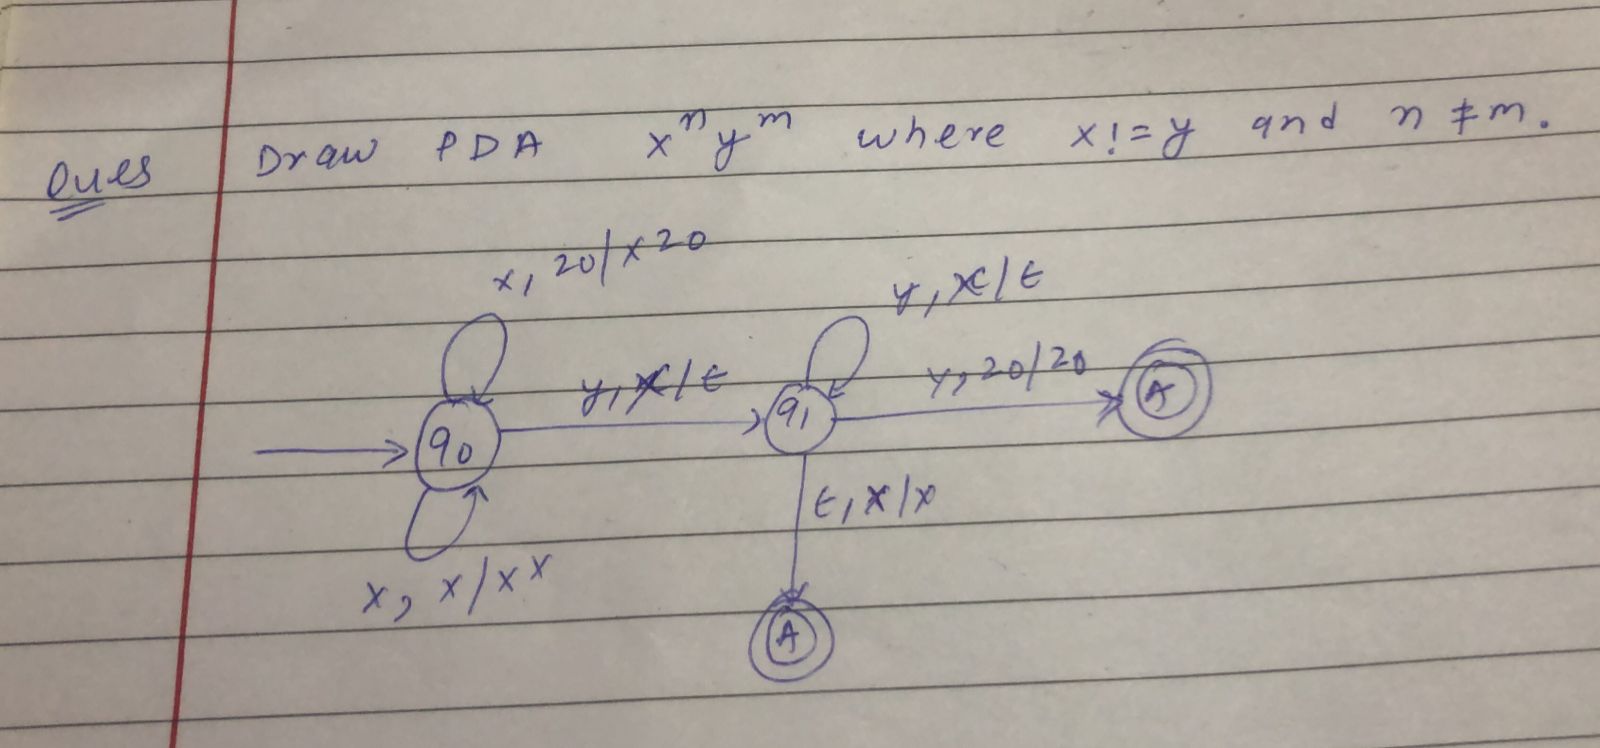 Ques Draw PDA xⁿyᵐ where x!=y and n ≠ m.
x, z0/xz0
y, x/ε
y, x/ε
y, z0/z0
A
q1
q0
ε, x/x
x, x/xx
A